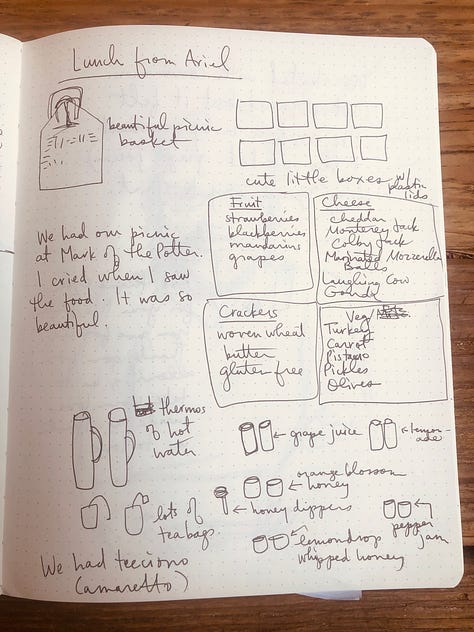 Lunch from Ariel
beautiful picnic
basket
cute little boxes w/
plastic
lids
We had our picnic
at Mark of the Potter.
I cried when I saw
the food. It was so
beautiful.
Fruit
strawberries
blackberries
mandarins
grapes
Cheese
cheddar
Monterey Jack
Colby Jack
Marinated Mozzerella
Balls
Laughing Cow
Gouda
Crackers
woven wheat
butter
gluten free
Veg/
Turkey
Carrot
Pistachio
Pickles
Olives
thermos
of hot
water
grape juice
lemon-
ade
orange blossom
honey
lots of
teabags
honey dippers
pepper
jam
lemondrop
whipped honey
We had teeccino
(amaretto)